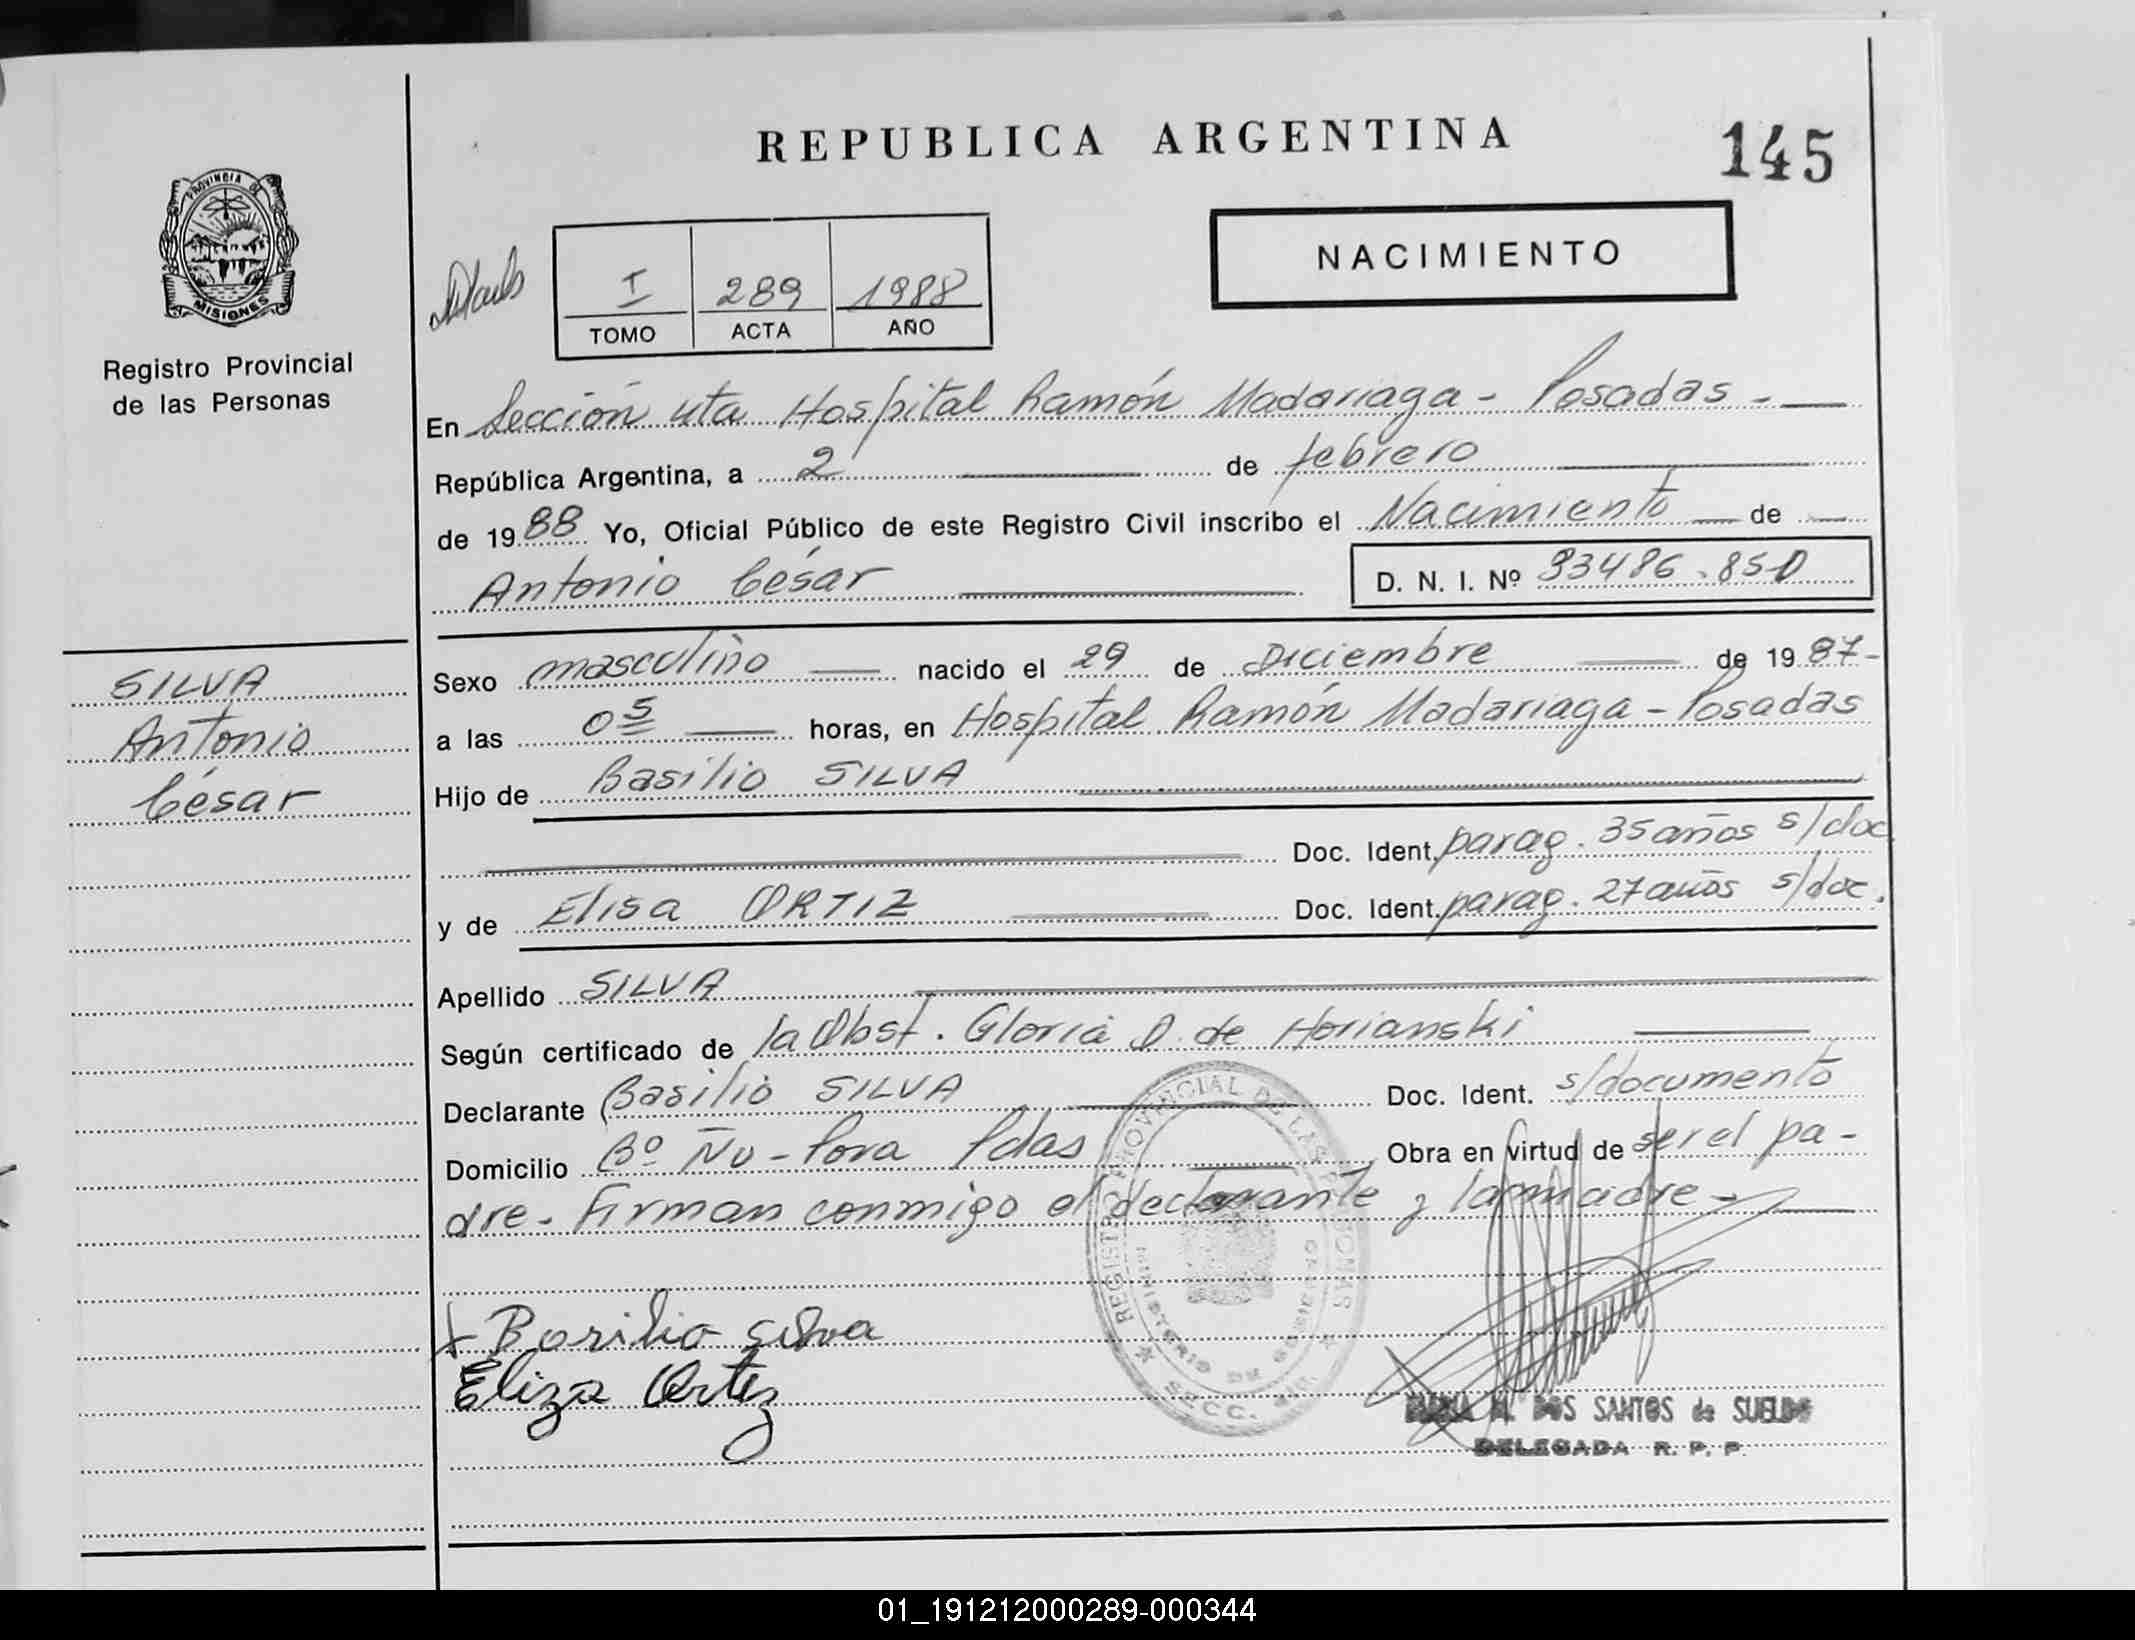 REPUBLICA ARGENTINA
145
PROVINCIA DE
MISIONES
Registro Provincial
de las Personas
NACIMIENTO
I 289 1988
TOMO ACTA AÑO
En Sección 4ta Hospital Ramón Madariaga - Posadas -
República Argentina, a 2 de febrero
de 1988 Yo, Oficial Público de este Registro Civil inscribo el Nacimiento de
Antonio César
D. N. I. Nº 93486.850
SILVA
Antonio
César
Sexo masculino nacido el 29 de Diciembre de 1987-
a las 05 horas, en Hospital Ramón Madariaga - Posadas
Hijo de Basilio SILVA
Doc. Ident. parag. 35 años s/doc
y de Elisa ORTIZ Doc. Ident. parag. 27 años s/doc.
Apellido SILVA
Según certificado de la Obst. Gloria D. de Horianski
Declarante Basilio SILVA Doc. Ident. s/documento
Domicilio Bº Ñu-Pora Pdas Obra en virtud de ser el pa-
dre. Firman conmigo el declarante y la madre -
REGISTRO PROVINCIAL DE LAS PERSONAS
MINISTERIO DE GOBIERNO
SECC. 4ta.
Basilio silva
Eliza Ortiz
MARIA M. DOS SANTOS de SUELDO
DELEGADA R. P. P.
01_191212000289-000344